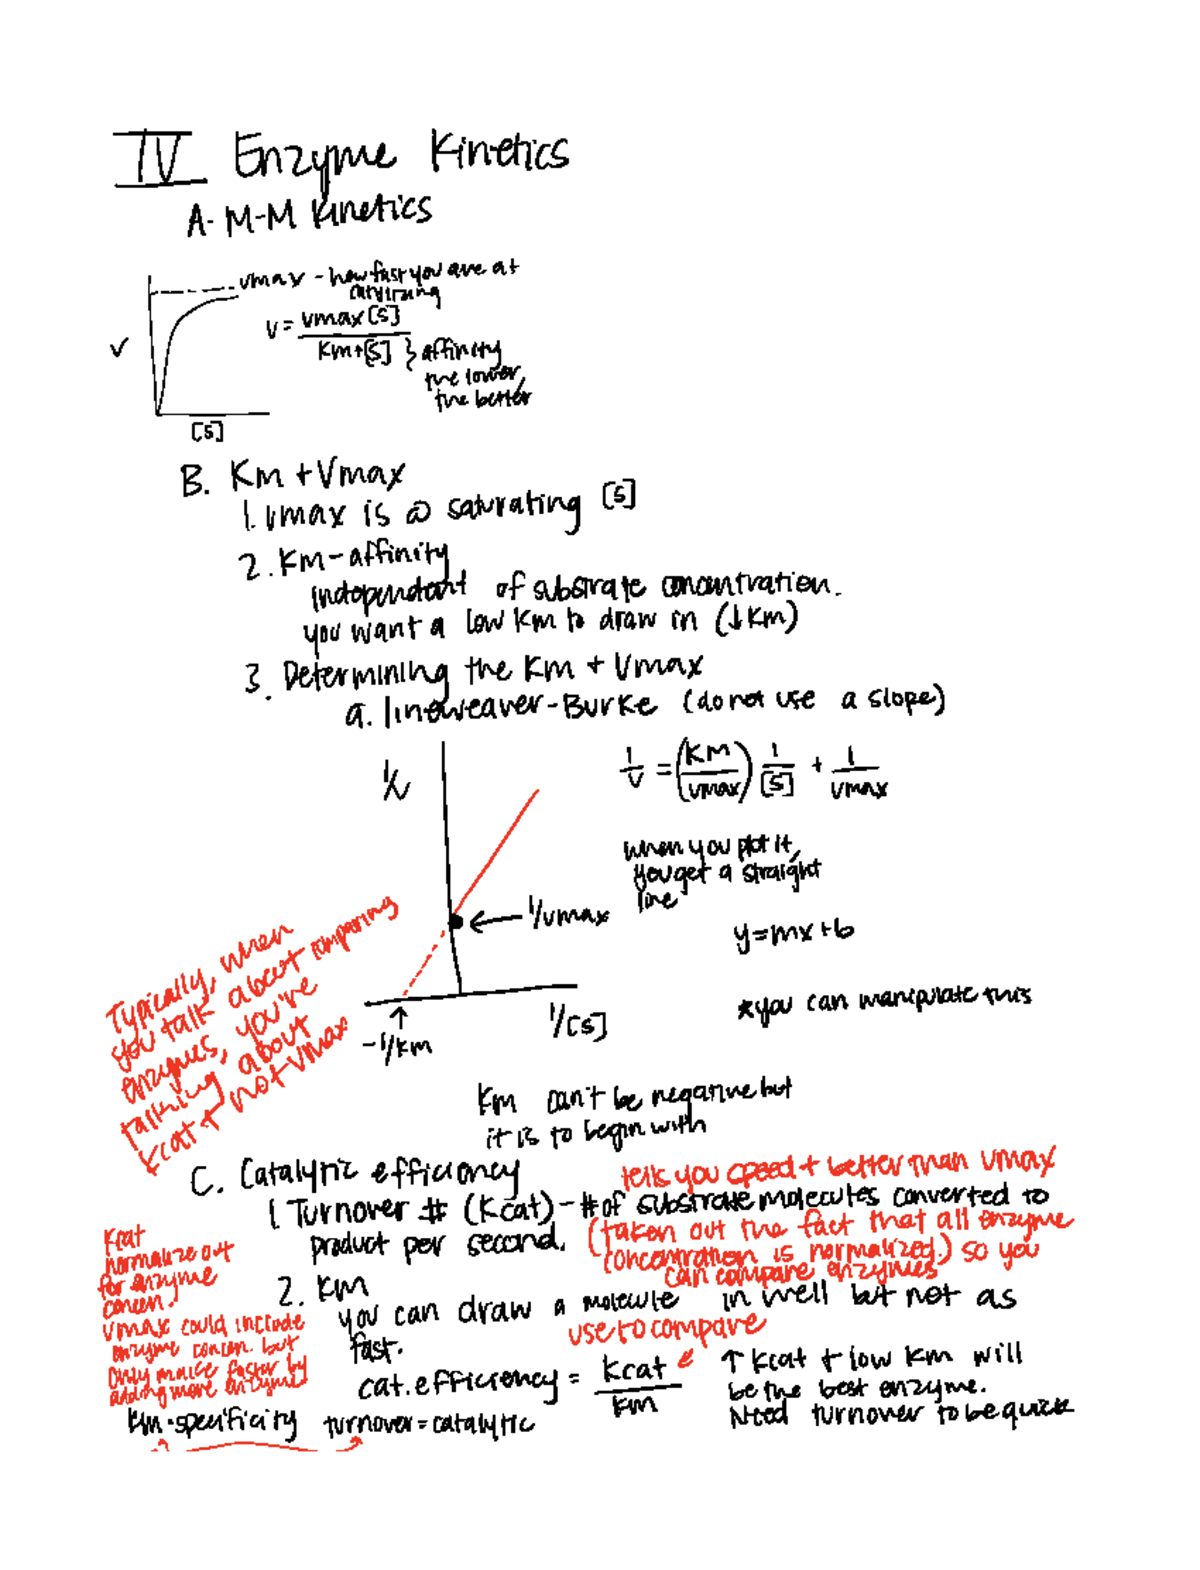 IV Enzyme Kinetics
A. M-M Kinetics
vmax - how fast you are at
v = vmax[S] / Km+[S] } affinity
the lower,
the better
v
[S]
B. Km + Vmax
1. Vmax is @ saturating [S]
2. Km - affinity
independent of substrate concentration.
you want a low Km to draw in (↓Km)
3. Determining the Km + Vmax
a. lineweaver-Burke (do not use a slope)
1/v
1/v = (KM/vmax) 1/[S] + 1/vmax
when you plot it,
you get a straight
line
1/vmax
y=mx+b
*you can manipulate this
1/[S]
-1/km
Typically, when
you talk about comparing
enzymes, you're
talking about
kcat + not vmax
Km can't be negative but
it is to begin with
C. Catalytic efficiency
tells you speed + better than vmax
1. Turnover # (Kcat) - # of substrate molecules converted to
product per second. (taken out the fact that all enzyme
concentration is normalized.) so you
can compare enzymes
Kcat
normalize out
for enzyme
concen.
vmax could include
enzyme concen. but
only make faster by
adding more enzyme
2. KM
you can draw a molecule in well but not as
fast.
use to compare
cat. efficiency = Kcat / Km
↑ Kcat + low Km will
be the best enzyme.
Need turnover to be quick
Km - specificity turnover = catalytic